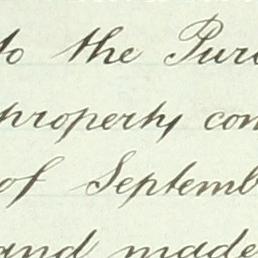 to the Pur
property, con
of Septemb
and made